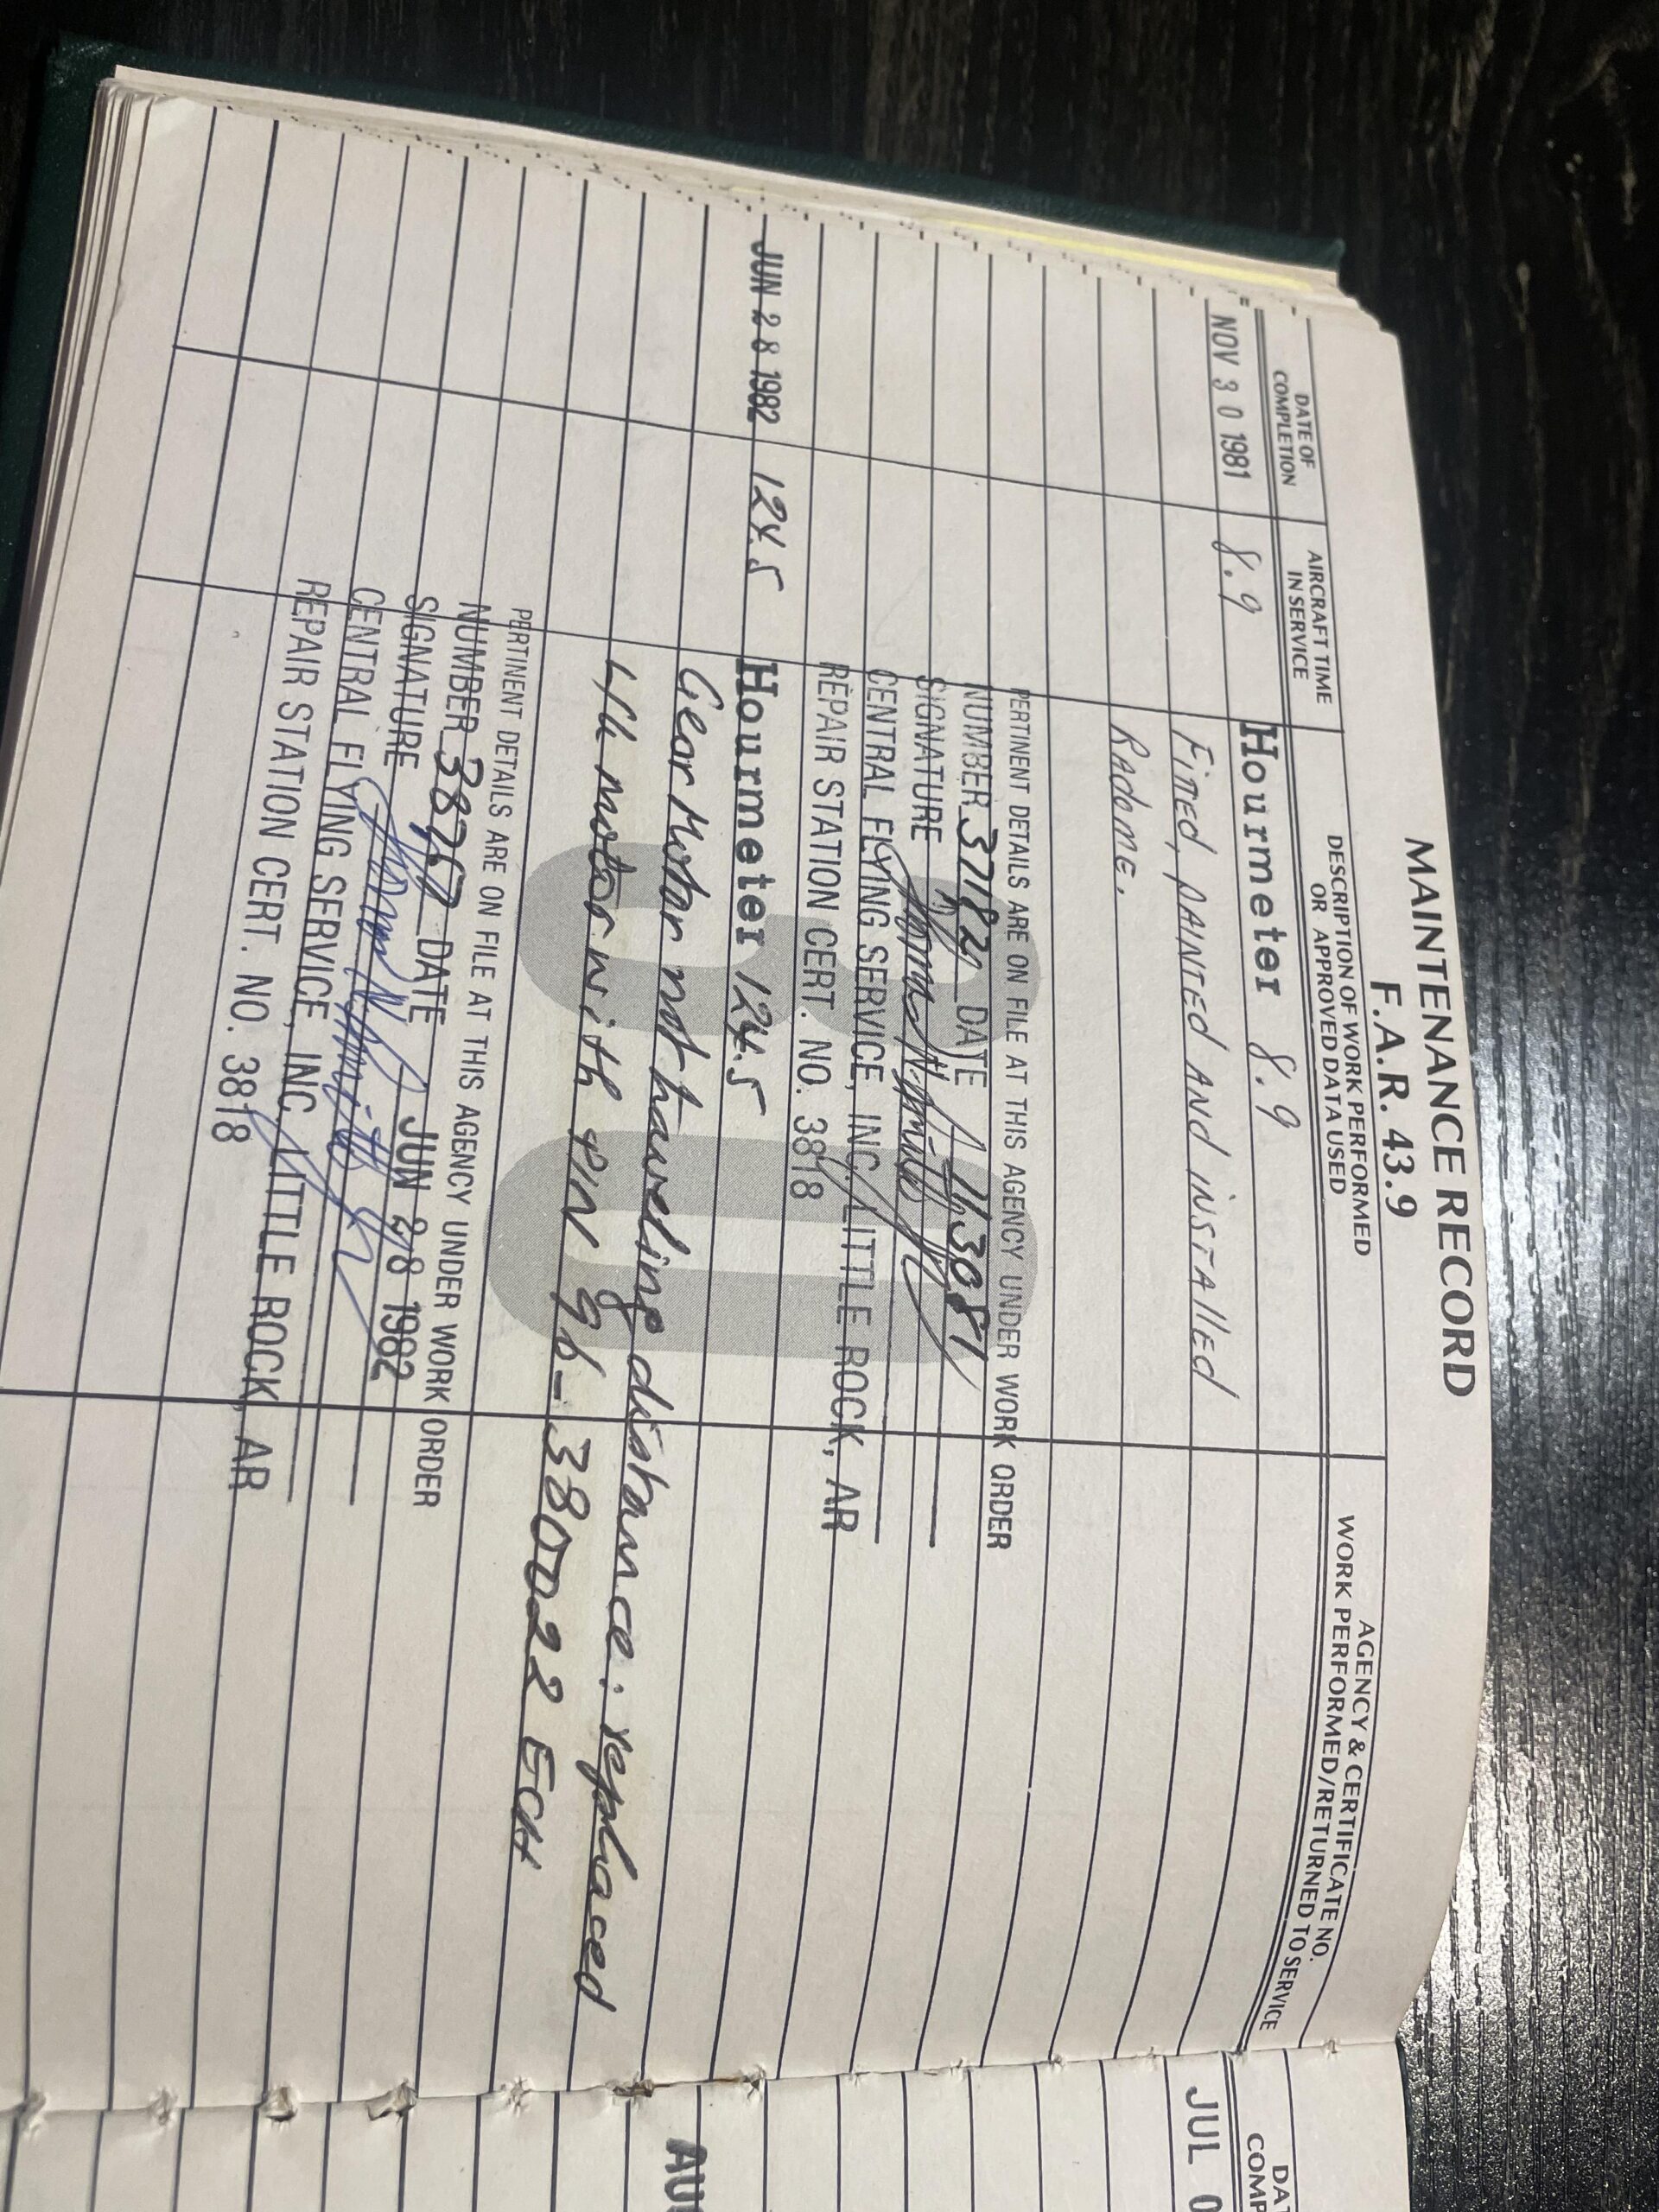 MAINTENANCE RECORD
F.A.R. 43.9
DATE OF COMPLETION
AIRCRAFT TIME IN SERVICE
DESCRIPTION OF WORK PERFORMED OR APPROVED DATA USED
AGENCY & CERTIFICATE NO. WORK PERFORMED/RETURNED TO SERVICE
NOV 30 1981 8.9 Hourmeter 8.9
Fitted, PAINTED AND INSTAllED
RAdome.
PERTINENT DETAILS ARE ON FILE AT THIS AGENCY UNDER WORK ORDER
NUMBER 37182 DATE 113081
SIGNATURE
CENTRAL FLYING SERVICE, INC. LITTLE ROCK, AR
REPAIR STATION CERT. NO. 3818
JUN 28 1982 124.5 Hourmeter 124.5
Gear Motor not traveling distance: replaced
L/H motor with P/N 96-380022 ECH
PERTINENT DETAILS ARE ON FILE AT THIS AGENCY UNDER WORK ORDER
NUMBER 38767 DATE JUN 28 1982
SIGNATURE
CENTRAL FLYING SERVICE, INC. LITTLE ROCK, AR
REPAIR STATION CERT. NO. 3818
DAT
COMP
JUL 0
AU